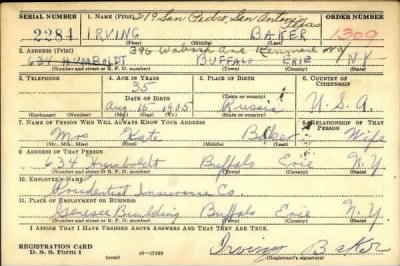 SERIAL NUMBER 1. NAME (Print) 319 San Pedro, San Antonio, Texas ORDER NUMBER
2284 IRVING BAKER 1309
(First) (Middle) (Last)
2. ADDRESS (Print) 396 Wabash Ave Kenmore N.Y.
634 HUMBOLDT BUFFALO ERIE N.Y.
(Number and street or R. F. D. number) (Town) (County) (State)
3. TELEPHONE 4. AGE IN YEARS 5. PLACE OF BIRTH 6. COUNTRY OF CITIZENSHIP
35
DATE OF BIRTH
Aug 15 1905 Russia U.S.A.
(Exchange) (Number) (Mo.) (Day) (Yr.) (State or country)
7. NAME OF PERSON WHO WILL ALWAYS KNOW YOUR ADDRESS 8. RELATIONSHIP OF THAT PERSON
Mrs Kate Baker Wife
(Mr., Mrs., Miss) (First) (Middle) (Last)
9. ADDRESS OF THAT PERSON
634 Humboldt Buffalo Erie N.Y.
(Number and street or R. F. D. number) (Town) (County) (State)
10. EMPLOYER'S NAME
Prudential Insurance Co.
11. PLACE OF EMPLOYMENT OR BUSINESS
Genesee Building Buffalo Erie N.Y.
(Number and street or R. F. D. number) (Town) (County) (State)
I AFFIRM THAT I HAVE VERIFIED ABOVE ANSWERS AND THAT THEY ARE TRUE.
REGISTRATION CARD
D. S. S. Form 1 (over) Irving Baker